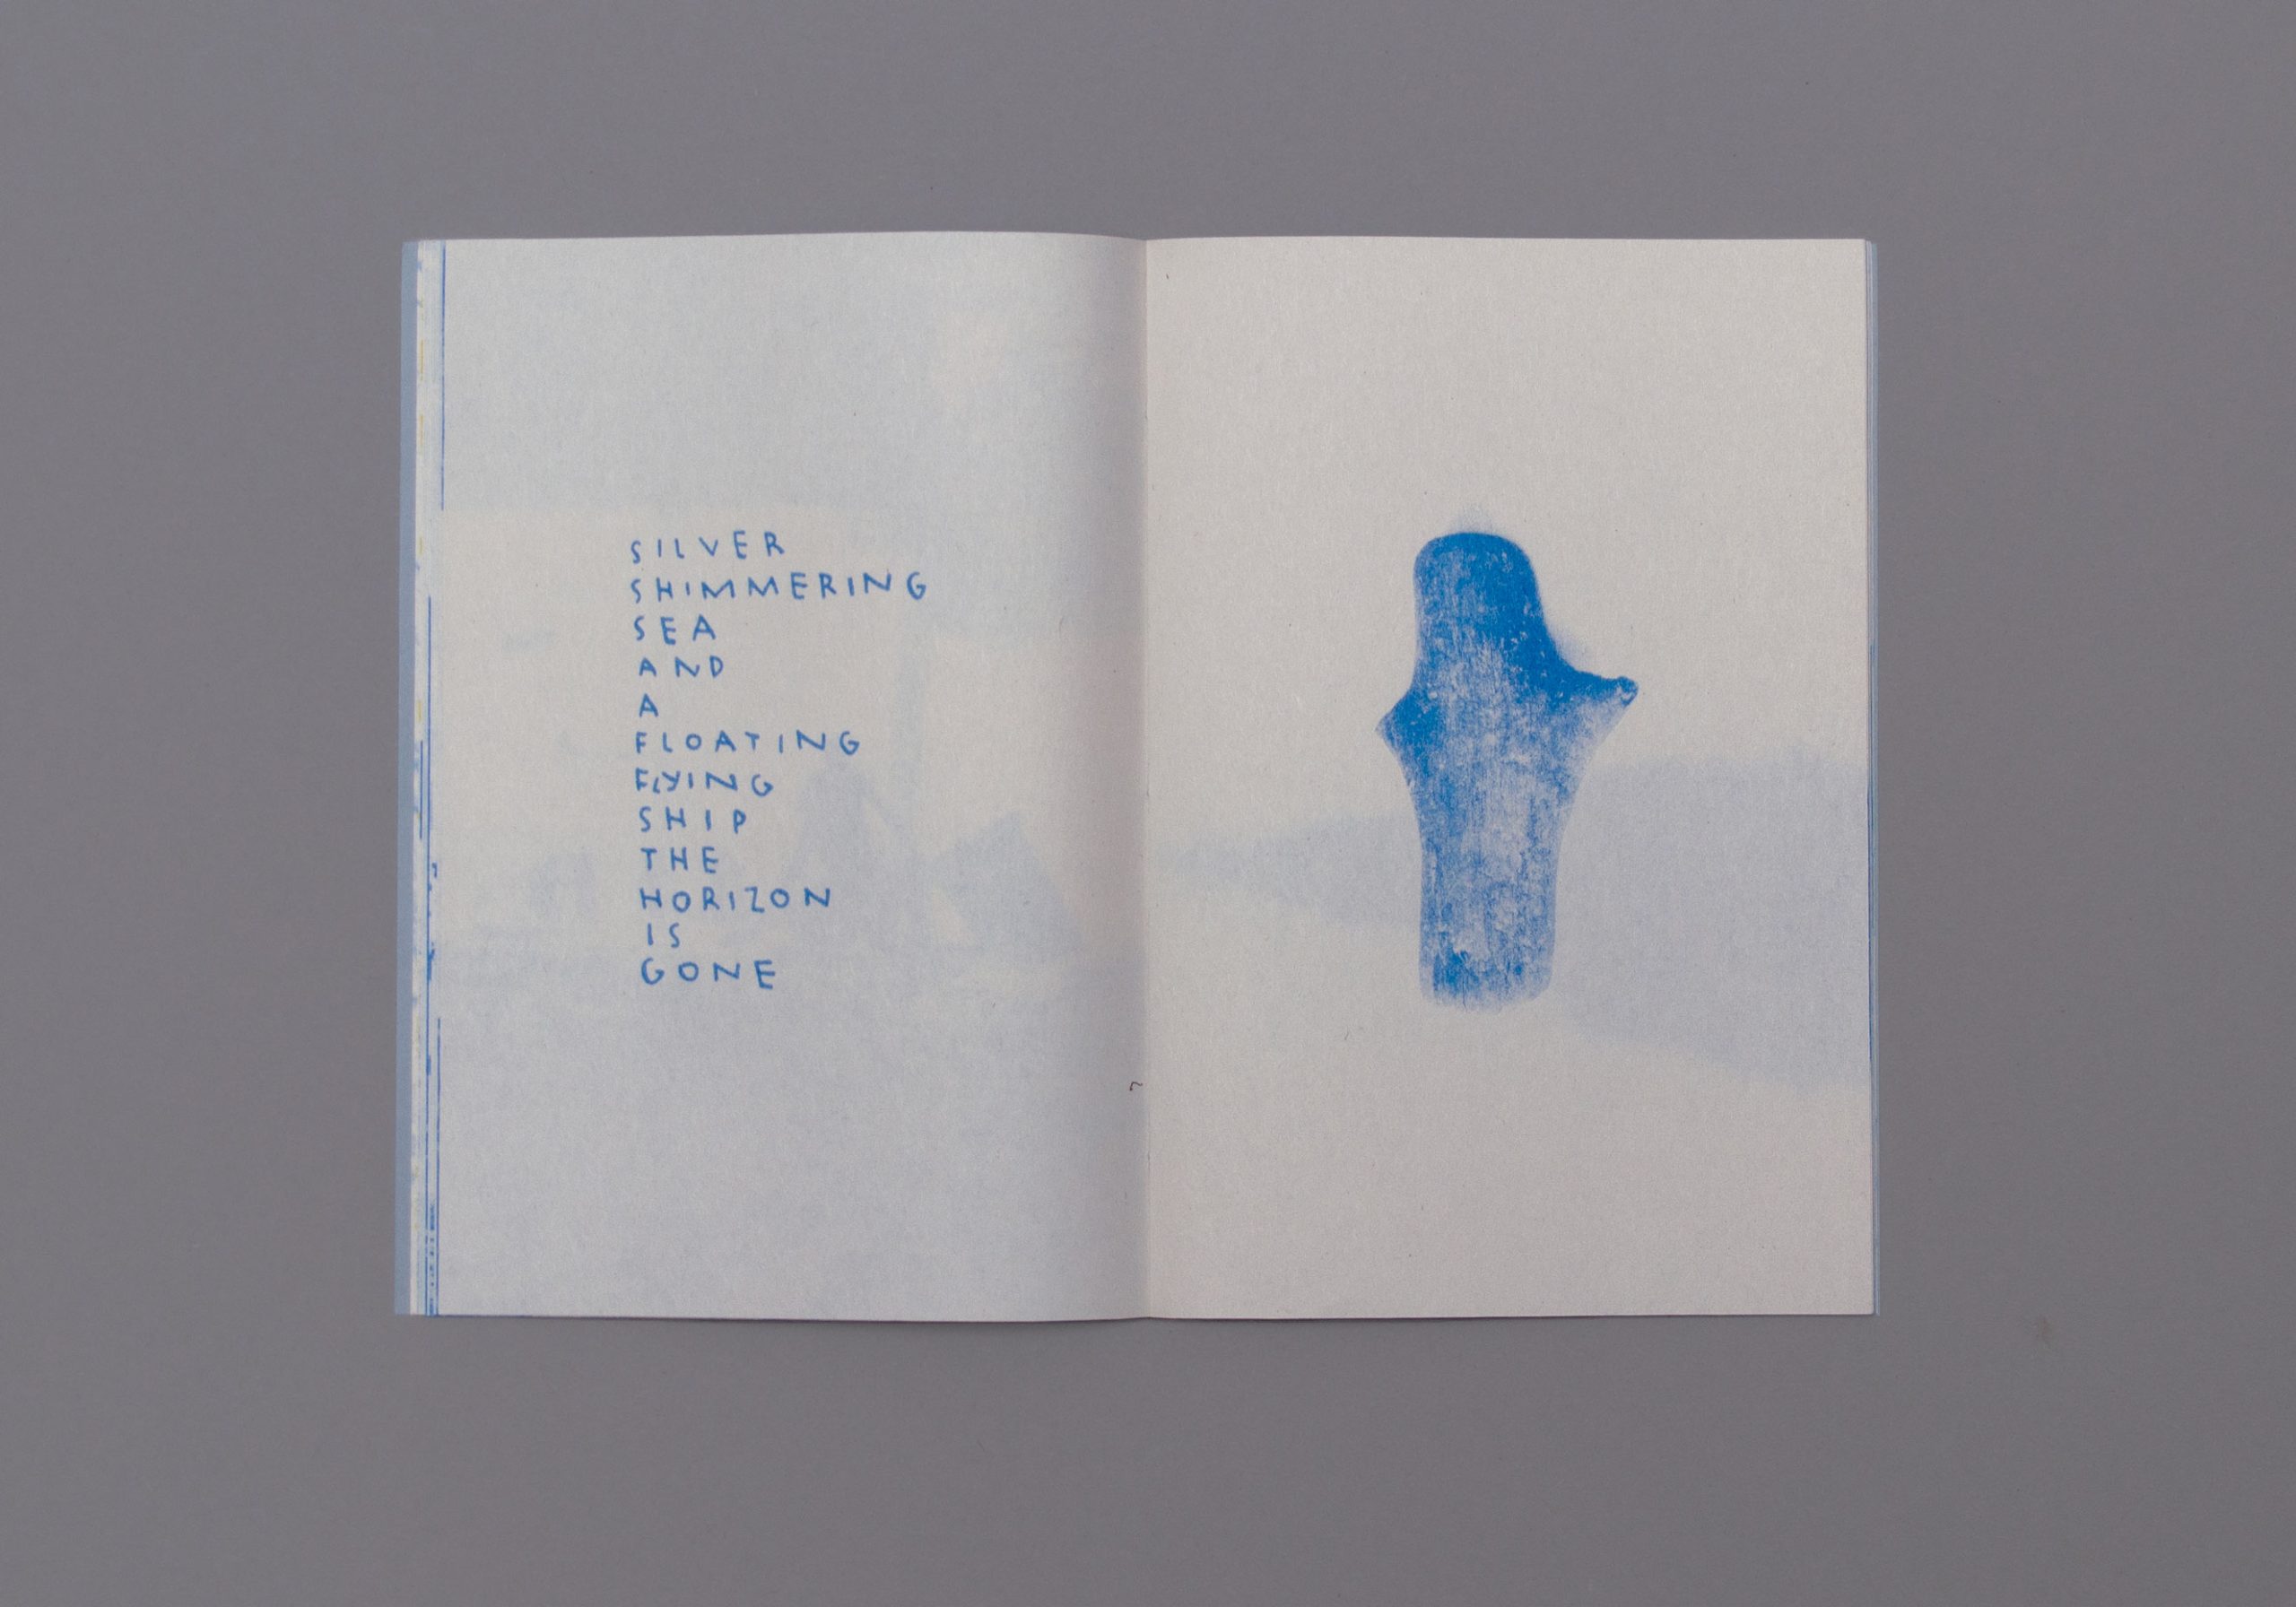 SILVER
SHIMMERING
SEA
AND
A
FLOATING
FLYING
SHIP
THE
HORIZON
IS
GONE